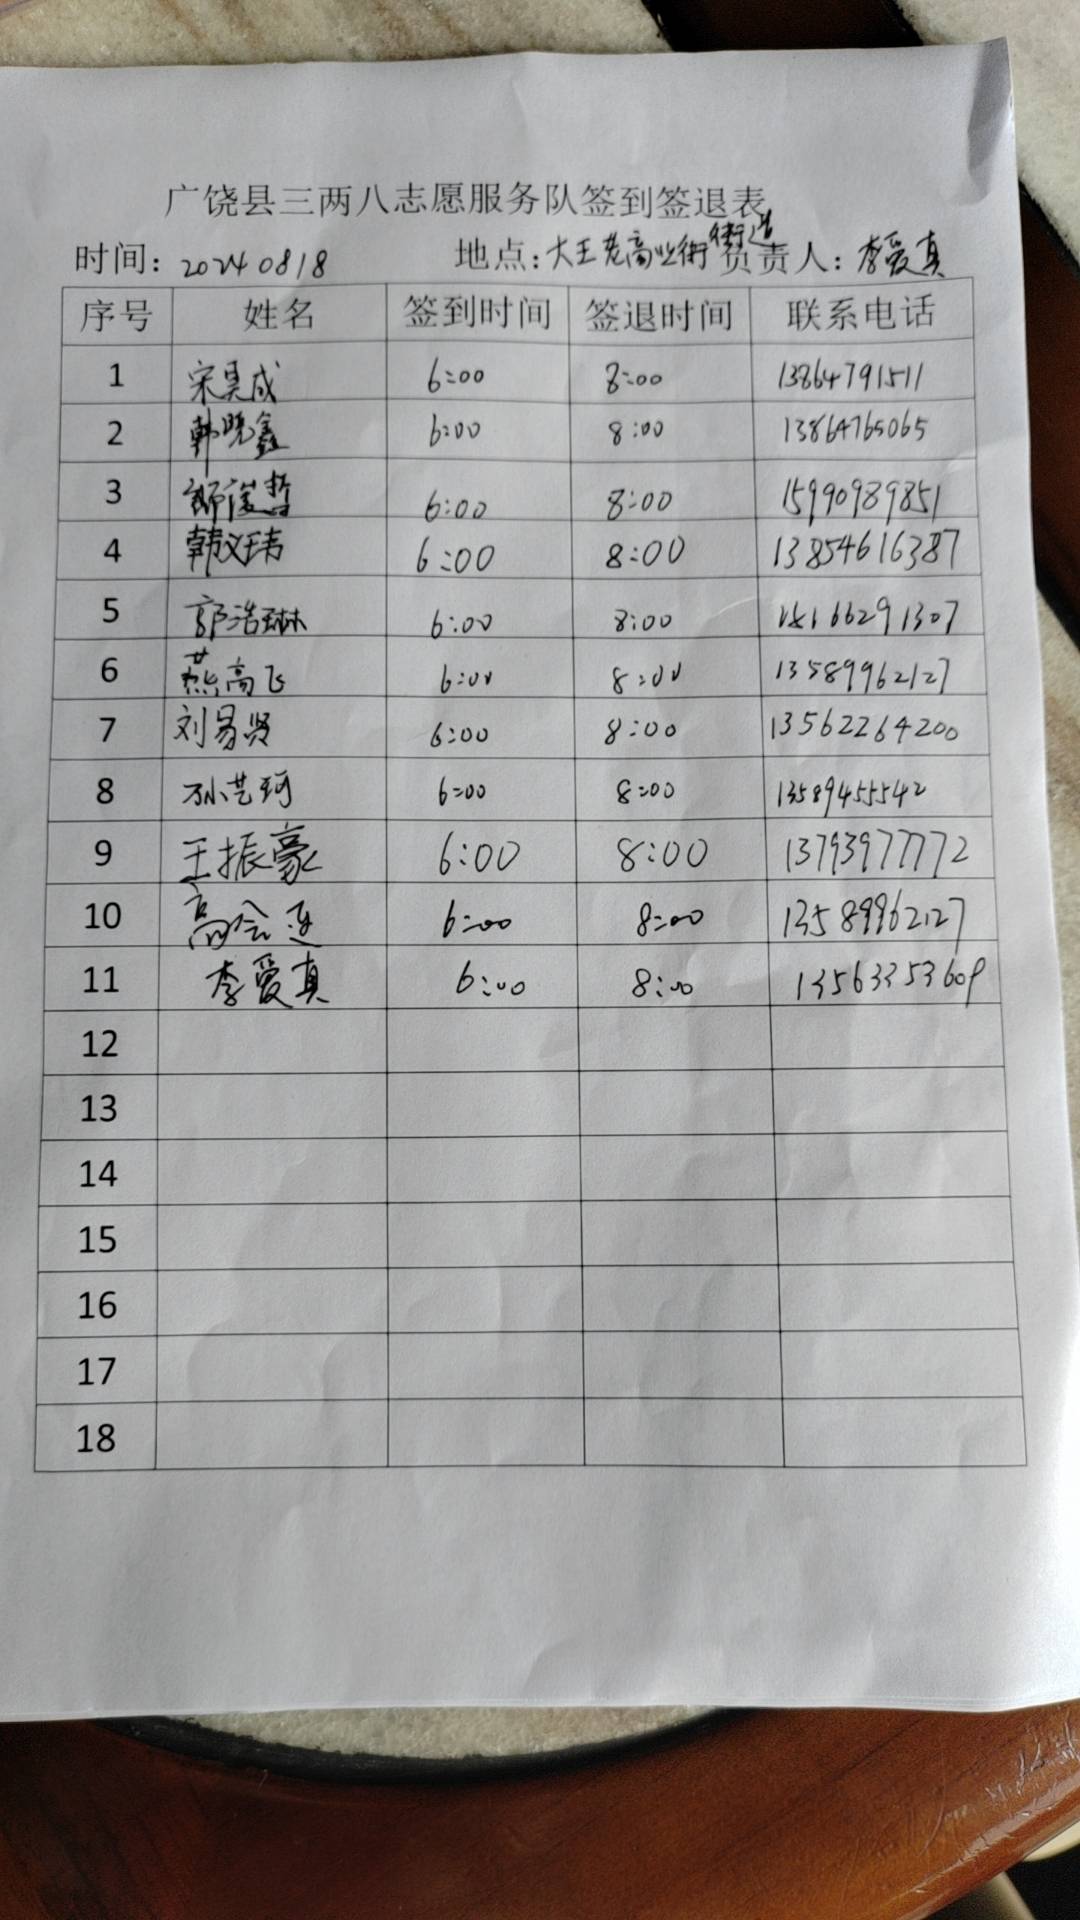 广饶县三两八志愿服务队签到签退表
时间：20240818 地点：大王老商业街街道 负责人：李爱真
序号 姓名 签到时间 签退时间 联系电话
1 宋昊成 6:00 8:00 13864791511
2 韩晓鑫 6:00 8:00 13864765065
3 俊哲 6:00 8:00 15990989851
4 韩义玮 6:00 8:00 13854616387
5 郭浩琳 6:00 8:00
6 燕高飞 6:00 8:00 13589962127
7 刘易贤 6:00 8:00 13562264200
8 孙艺珂 6:00 8:00 13589455542
9 王振豪 6:00 8:00 13793977772
10 高会莲 6:00 8:00 13589962127
11 李爱真 6:00 8:00 13563353609
12
13
14
15
16
17
18